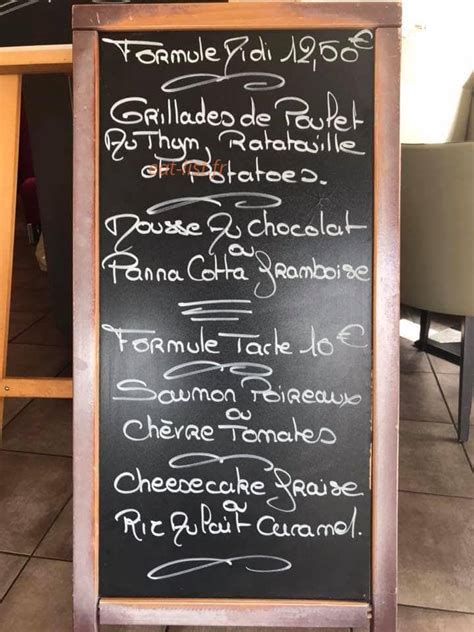 Formule Midi 12,50€
Grillades de Poulet
Au Thym, Ratatouille
et Potatoes.
Mousse Au chocolat
ou
Panna Cotta framboise
Formule Tarte 10€
Saumon Poireaux
ou
Chèvre Tomates
Cheesecake fraise
ou
Riz Au lait Caramel.